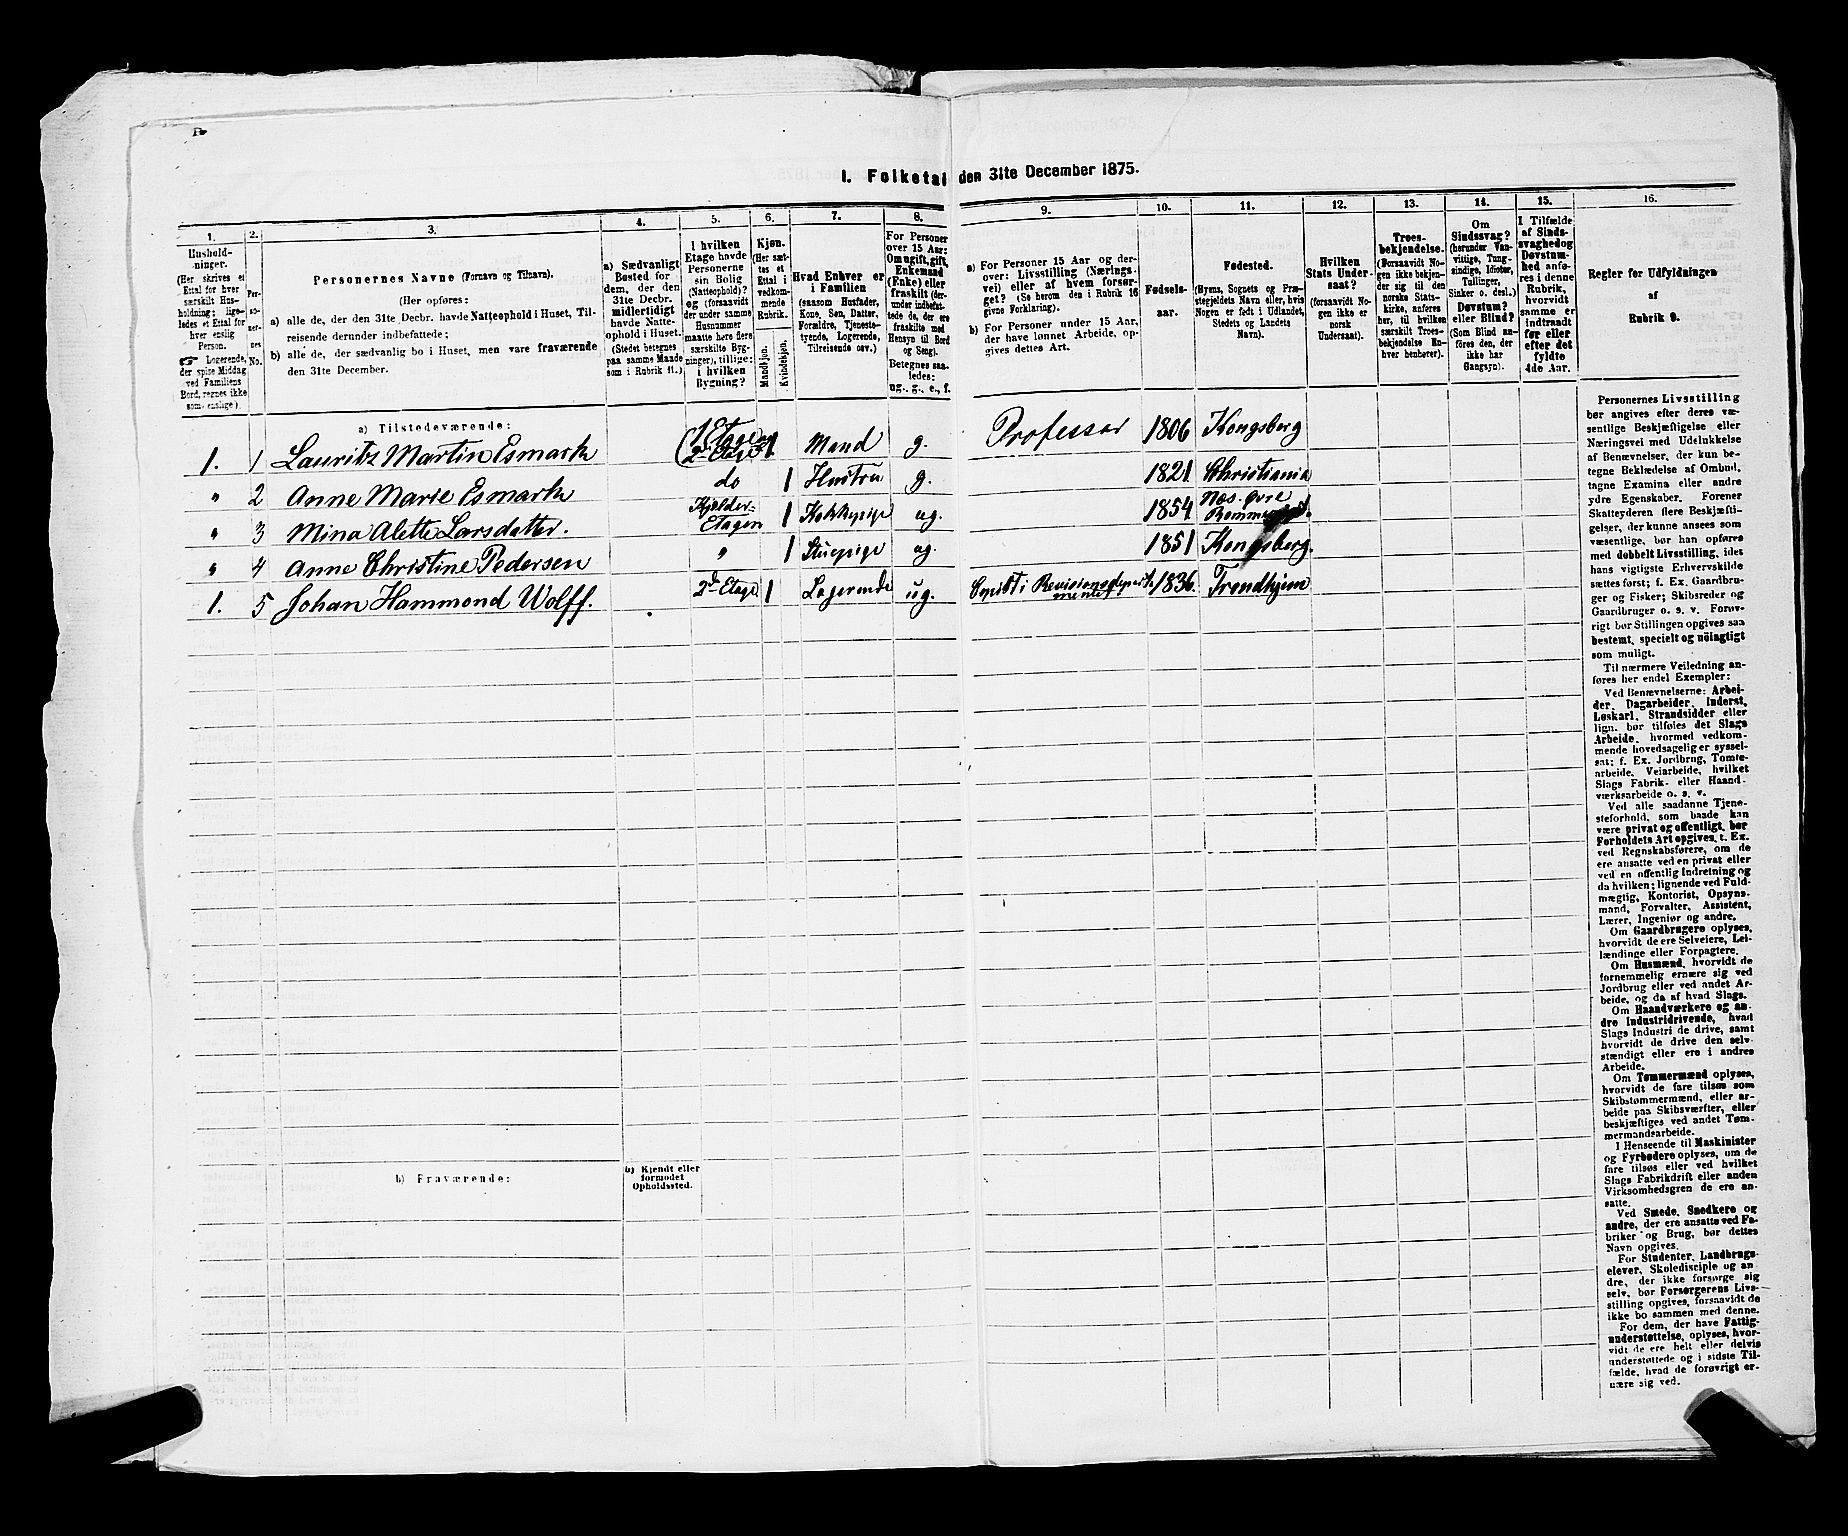 I. Folketal den 31te December 1875.
1.
2.
3.
4.
5.
6.
7.
8.
9.
10.
11.
12.
13.
14.
15.
16.
Hushold-
ninger.
(Her skrives et
Ettal for hver
særskilt Hus-
holdning; lige-
ledes et Ettal for
hver enslig
Person.
☛ Logerende,
der spise Middag
ved Familiens
Bord, regnes ikke
som enslige).
Per-
so-
ner-
nes
No.
Personernes Navne (Fornavn og Tilnavn).
(Her opføres:
a) alle de, der den 31te Decbr. havde Natteophold i Huset, Til-
reisende derunder indbefattede;
b) alle de, der sædvanlig bo i Huset, men vare fraværende
den 31te December.
a) Sædvanligt
Bosted for
dem, der den
31te Decbr.
midlertidigt
havde Natte-
ophold i Huset.
(Stedet betegnes
paa samme Maade
som i Rubrik 11.)
I hvilken
Etage havde
Personerne
sin Bolig
(Natteophold)?
og (forsaavidt
der under samme
Husnummer
maatte høre flere
særskilte Byg-
ninger), tillige:
i hvilken
Bygning?
Kjøn.
(Her sæt-
tes et
Ettal i
vedkom-
mende
Rubrik.
Mandkjøn.
Kvindekjøn.
Hvad Enhver er
i Familien
(saasom Husfader,
Kone, Søn, Datter,
Forældre, Tjeneste-
tyende, Logerende,
Tilreisende osv.)
For Personer
over 15 Aar:
Om ugift, gift,
Enkemand
(Enke) eller
fraskilt (der-
under indbefat-
tede de, der ere
fraskilte med
Hensyn til Bord
og Seng).
Betegnes saa-
ledes:
ug., g., e., f.
a) For Personer 15 Aar og der-
over: Livsstilling (Nærings-
vei) eller af hvem forsør-
get? (Se herom den i Rubrik 16
givne Forklaring).
b) For Personer under 15 Aar,
der have lønnet Arbeide, op-
gives dettes Art.
Fødsels-
aar.
Fødested.
(Byens, Sognets og Præ-
stegjeldets Navn eller, hvis
Nogen er født i Udlandet,
Stedets og Landets
Navn).
Hvilken
Stats Under-
saat?
(forsaavidt No-
gen ikke er
norsk
Undersaat).
Troes-
bekjendelse.
(Forsaavidt No-
gen ikke bekjen-
der sig til den
norske Stats-
kirke, anføres
her, til hvilken
særskilt Troes-
bekjendelse En-
hver henhører).
Om
Sindssvag?
(herunder Van-
vittige, Tung-
sindige, Idioter,
Tullinger,
Sinker o. desl.)
Døvstum?
eller Blind?
(Som Blind an-
føres den, der
ikke har
Gangsyn).
I Tilfælde
af Sinds-
svaghed og
Døvstum-
hed anfø-
res i denne
Rubrik,
hvorvidt
samme er
indtraadt
før eller
efter det
fyldte
4de Aar.
Regler for Udfyldningen
af
Rubrik 9.
a) Tilstedeværende:
1. 1 Lauritz Martin Esmark (1 Etage og 2n Etage) 1 Mand g. Professor 1806 Kongsberg
" 2 Anne Marie Esmark do 1 Hustru g. 1821 Christiania
" 3 Mina Alette Larsdatter. Kjelder-Etagen 1 Kokkepige ug. 1854 Næs. øvre
" 4 Anne Christine Pedersen " 1 Stuepige ug. 1851 Kongsberg.
1. 5 Johan Hammond Wolff. 2d Etage 1 Logerende ug. Copist i Revisionsdepartementet 1836. Trondhjem
b) Fraværende:
b) Kjendt eller
formodet
Opholdssted.
Personernes Livsstilling
bør angives efter deres væ-
sentlige Beskjæftigelse eller
Næringsvei med Udelukkelse
af Benævnelser, der kun be-
tegne Beklædelse af Ombud,
tagne Examina eller andre
ydre Egenskaber. Forener
Skatteyderen flere Beskjæfti-
gelser, der kunne ansees som
væsentlige, bør han opføres
med dobbelt Livsstilling, idet
hans vigtigste Erhvervskilde
sættes først; f. Ex. Gaardbru-
ger og Fisker; Skibsreder og
Gaardbruger o. s. v. Forøv-
rigt bør Stillingen opgives saa
bestemt, specielt og nøiagtigt
som muligt.
Til nærmere Veiledning an-
føres her endel Exempler:
Ved Benævnelserne: Arbei-
der, Dagarbeider, Inderst,
Løskarl, Strandsidder eller
lign. bør tilføies det Slags
Arbeide, hvormed vedkom-
mende hovedsagelig er syssel-
sat; f. Ex. Jordbrug, Tomte-
arbeide, Veiarbeide, hvilket
Slags Fabrik- eller Haand-
værksarbeide o. s. v.
Ved alle saadanne Tjene-
steforhold, som baade kan
være privat og offentligt, bør
Forholdets Art opgives, f. Ex.
ved Regnskabsførere, om de
ere ansatte ved en privat eller
ved en offentlig Indretning og
da hvilken; lignende ved Fuld-
mægtig, Kontorist, Opsyns-
mand, Forvalter, Assistent,
Lærer, Ingeniør og andre.
Om Gaardbrugere oplyses,
hvorvidt de ere Selveiere, Lei-
lændinge eller Forpagtere.
Om Husmænd, hvorvidt de
fornemmelig ernære sig ved
Jordbrug eller ved andet Ar-
beide, og da af hvad Slags.
Om Haandværkere og an-
dre Industridrivende, hvad
Slags Industri de drive, samt
hvorvidt de drive den selv-
stændigt eller ere i andres
Arbeide.
Om Tømmermænd oplyses,
hvorvidt de fare tilsøs som
Skibstømmermænd, eller ar-
beide paa Skibsværfter, eller
beskjæftiges ved andet Tøm-
mermandsarbeide.
I Henseende til Maskinister
og Fyrbødere oplyses, om de
fare tilsøs eller ved hvilket
Slags Fabrikdrift eller anden
Virksomhedsgren de ere an-
satte.
Ved Smede, Snedkere og
andre, der ere ansatte ved Fa-
briker og Brug, bør dettes
Navn opgives.
For Studenter, Landbrugs-
elever, Skoledisciple og an-
dre, der ikke forsørge sig
selv, bør Forsørgerens Livs-
stilling opgives, forsaavidt de
ikke bo sammen med denne.
For dem, der have Fattig-
understøttelse, oplyses, hvor-
vidt de ere helt eller delvis
understøttede og i sidste Til-
fælde, hvad de forøvrigt er-
nære sig ved.